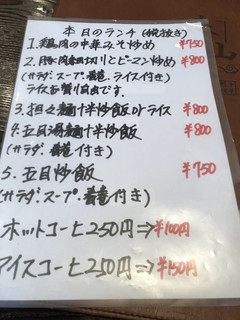 本日のランチ(税抜き)
1. 鶏肉の中華みそ炒め ¥750
2. 豚肉細切りとピーマン炒め ¥800
(サラダ・スープ・春巻・ライス付き)
ライスを替り自由です.
3. 担々麺+半炒飯orライス ¥800
4. 五目湯麺+半炒飯 ¥800
(サラダ・春巻付き)
5. 五目炒飯 ¥750
(サラダ・スープ・春巻付き)
ホットコーヒ250円⇒¥100円
アイスコーヒ250円⇒¥150円